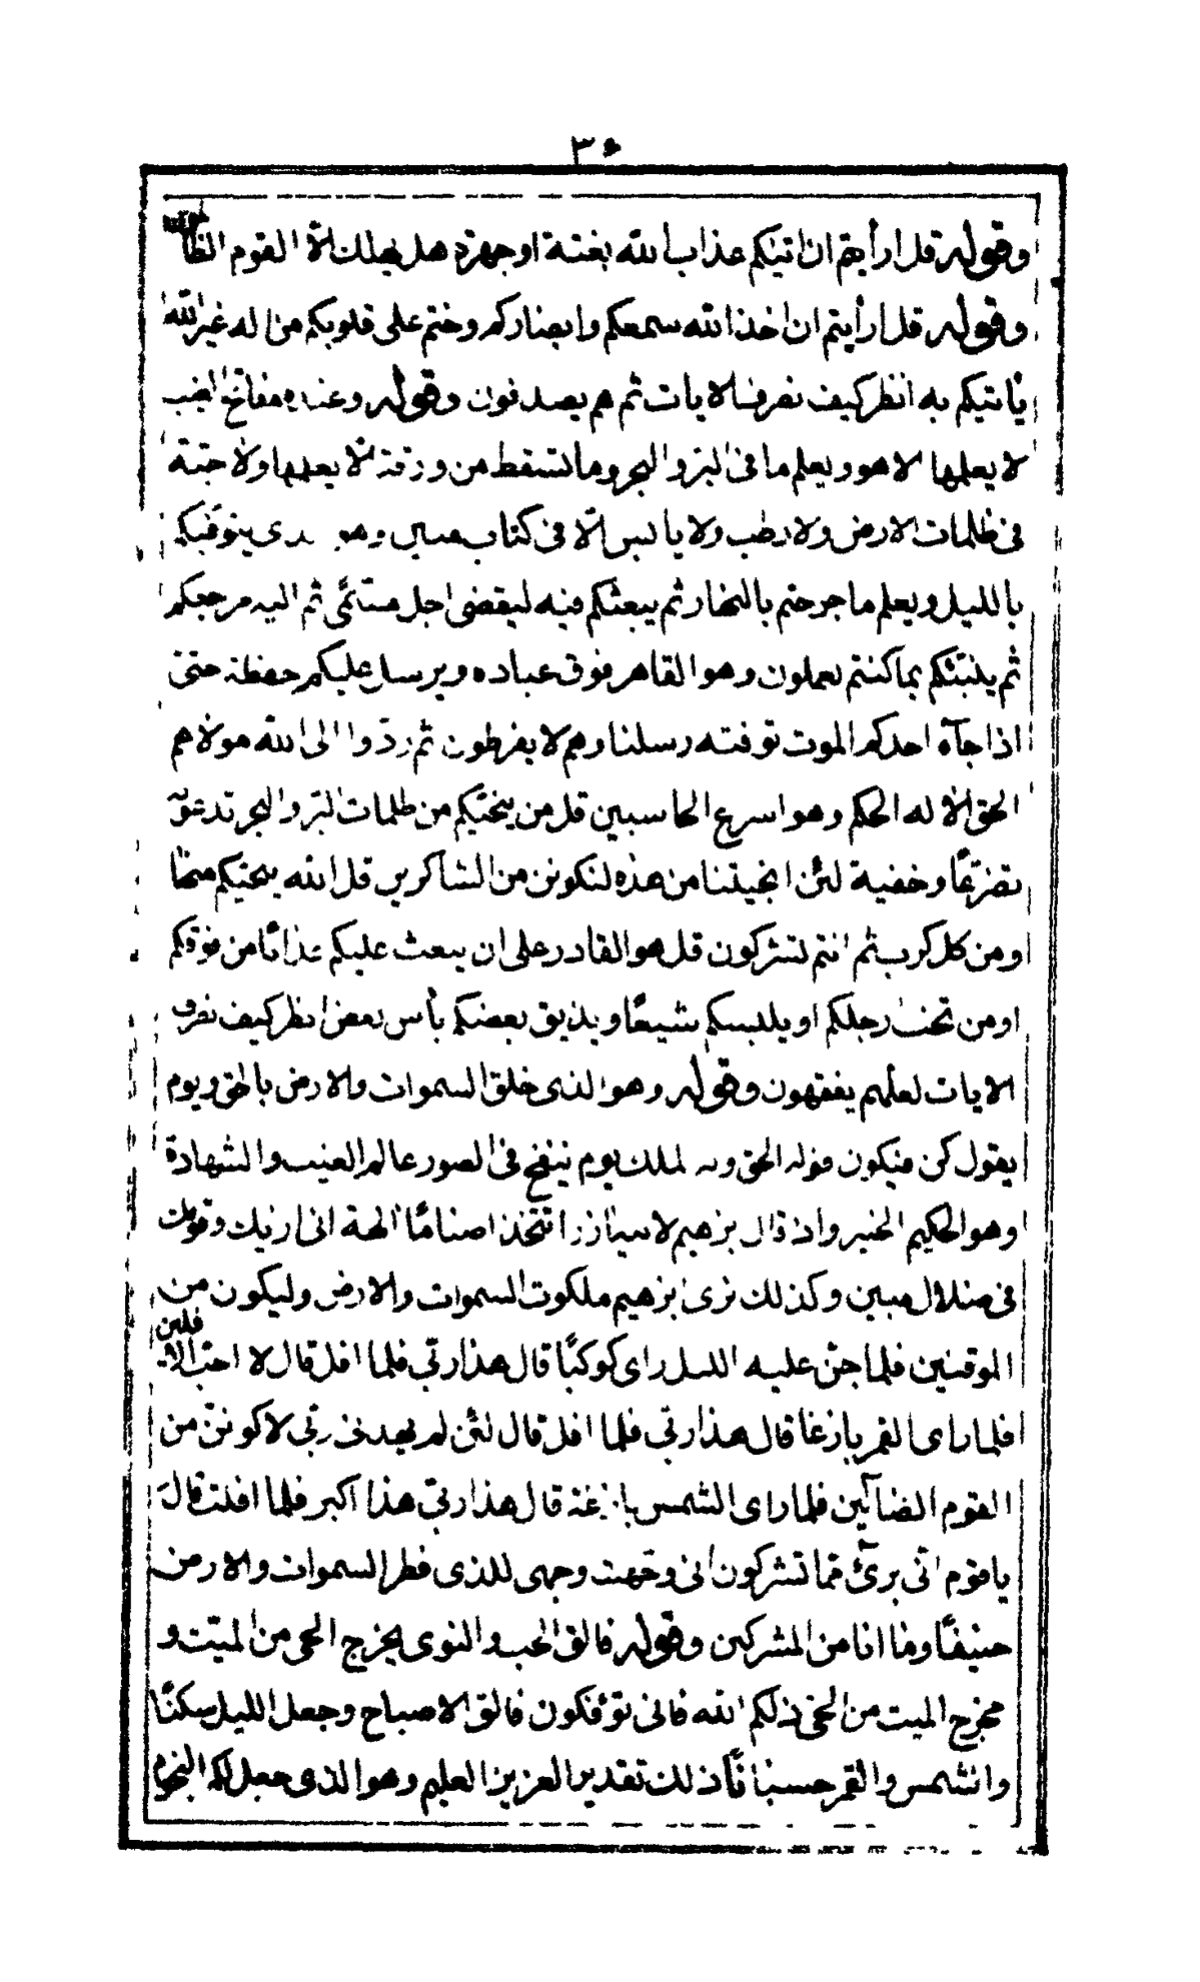 ٣٤
وقوله قل ارأيتم ان اتيكم عذاب الله بغتة او جهرة هل يهلك الّا القوم الظالمون
وقوله قل ارأيتم ان اخذ الله سمعكم وابصاركم وختم على قلوبكم من اله غير الله
يأتيكم به انظر كيف نصرف الايات ثم هم يصدفون وقوله وعنده مفاتح الغيب
لا يعلمها الا هو ويعلم ما فى البرّ والبحر وما تسقط من ورقة الّا يعلمها ولا حبّة
فى ظلمات الارض ولا رطب ولا يابس الّا فى كتاب مبين وهو الذى يتوفّيكم
بالليل ويعلم ما جرحتم بالنهار ثم يبعثكم فيه ليقضى اجل مسمّى ثم اليه مرجعكم
ثم ينبّئكم بما كنتم تعملون وهو القاهر فوق عباده ويرسل عليكم حفظة حتى
اذا جآء احدكم الموت توفته رسلنا وهم لا يفرطون ثم ردّوا الى الله مولاهم
الحق الا له الحكم وهو اسرع الحاسبين قل من ينجّيكم من ظلمات البرّ والبحر تدعونه
تضرّعًا وخفية لئن انجيتنا من هذه لنكونن من الشاكرين قل الله ينجّيكم منها
ومن كل كرب ثم انتم تشركون قل هو القادر على ان يبعث عليكم عذابًا من فوقكم
او من تحت ارجلكم او يلبسكم شيعًا ويذيق بعضكم بأس بعض انظر كيف نصرف
الايات لعلّهم يفقهون وقوله وهو الذى خلق السموات والارض بالحق ويوم
يقول كن فيكون قوله الحق وله الملك يوم ينفخ فى الصور عالم الغيب والشهادة
وهو الحكيم الخبير واذ قال ابرهيم لابيه ازر اتتخذ اصنامًا الهة انى اريك وقومك
فى ضلال مبين وكذلك نرى ابرهيم ملكوت السموات والارض وليكون من
الموقنين فلما جنّ عليه الليل راى كوكبًا قال هذا ربّى فلما افل قال لا احبّ الافلين
فلما راى القمر بازغا قال هذا ربّى فلما افل قال لئن لم يهدنى ربّى لاكوننّ من
القوم الضآلّين فلما راى الشمس بازغة قال هذا ربّى هذا اكبر فلما افلت قال
يا قوم انّى برئ ممّا تشركون انى وجّهت وجهى للذى فطر السموات والارض
حنيفًا وما انا من المشركين وقوله فالق الحب والنوى يخرج الحى من الميّت و
مخرج الميت من الحىّ ذلكم الله فانى تؤفكون فالق الاصباح وجعل الليل سكنًا
والشمس والقمر حسبانًا ذلك تقدير العزيز العليم وهو الذى جعل لكم النجوم